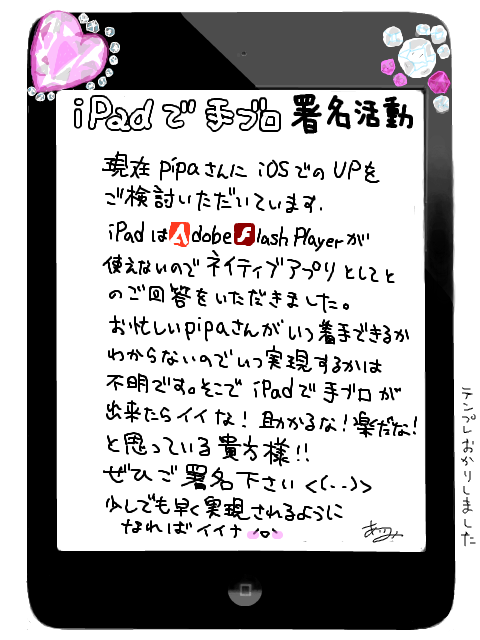 iPadで手ブロ署名活動
現在pipaさんにiOSでのUPを
ご検討いただいています.
iPadはAdobe Flash Playerが
使えないのでネイティブアプリとしてと
のご回答をいただきました。
お忙しいpipaさんがいつ着手できるか
わからないのでいつ実現するかは
不明です。そこでiPadで手ブロが
出来たらイイな!助かるな!楽だな!
と思っている貴方様!!
ぜひご署名下さい<(--)>
少しでも早く実現されるように
なればイイナ
テンプレおかりしました